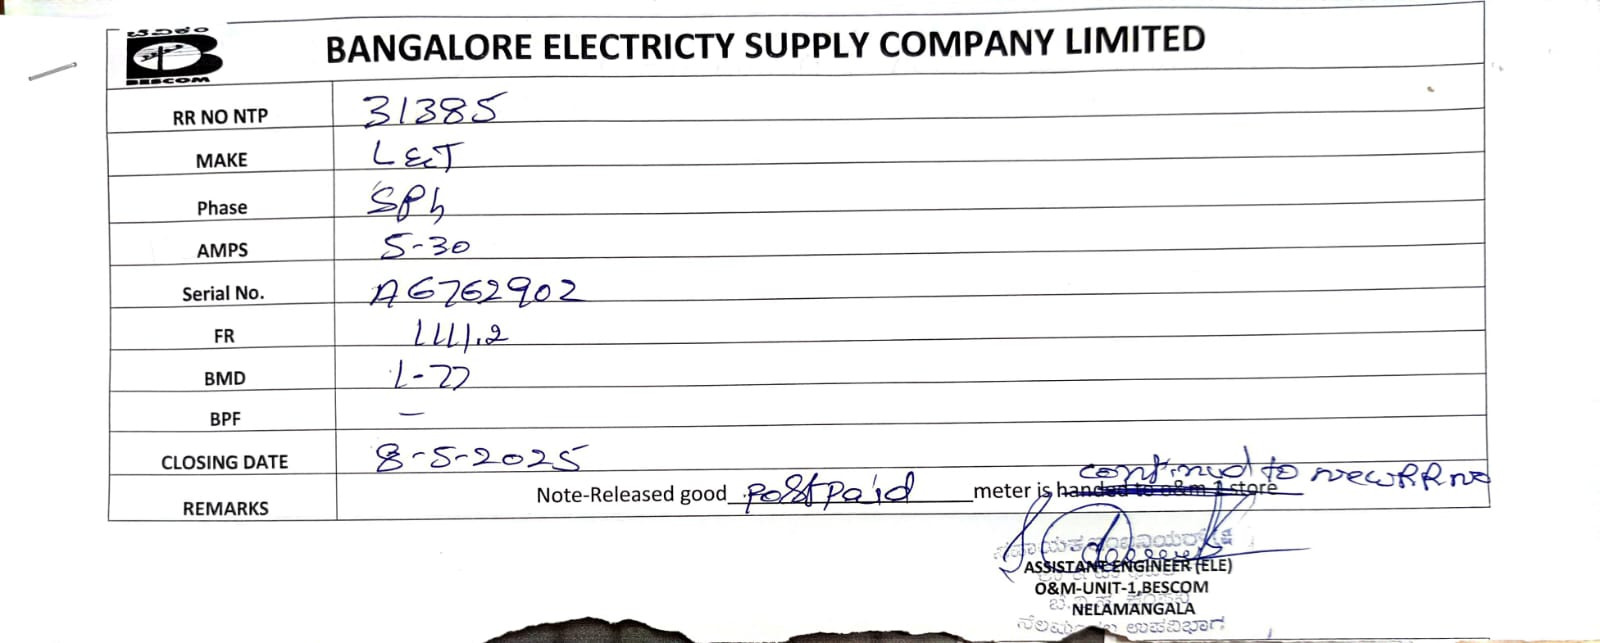 ಬೆವಿಕಂ
BESCOM
BANGALORE ELECTRICTY SUPPLY COMPANY LIMITED
RR NO NTP 31385
MAKE L&T
Phase SPh
AMPS 5-30
Serial No. A6762902
FR 1111.2
BMD 1-77
BPF -
CLOSING DATE 8-5-2025
REMARKS Note-Released good postpaid meter is handed to o&m 1 store continud to new RR no
ASSISTANT ENGINEER (ELE)
O&M-UNIT-1,BESCOM
NELAMANGALA
ನೆಲಮಂಗಲ ಉಪವಿಭಾಗ